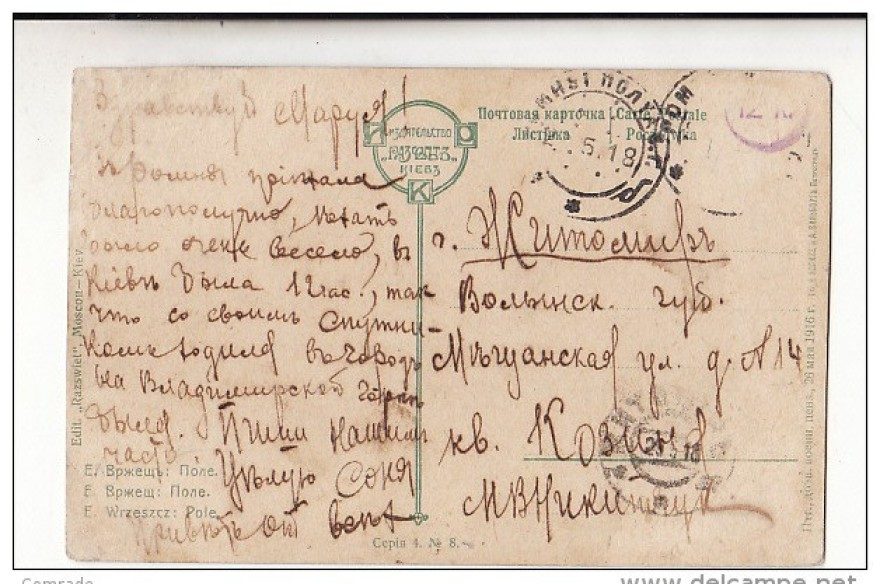 Здравствуй Маруся!
Я Ромны пріѣхала
благополучно, ѣхать
было очень весело, въ
Кіевѣ была 12 час., так
что со своимъ спутни-
комъ ходила въ городъ
на Владимирской горкѣ
была. Пиши нашимъ
часто.
Цѣлую Соня
Привѣтъ от всѣхъ
ИЗДАТЕЛЬСТВО
"РАЗСВѢТЪ"
КІЕВЪ
К
Почтовая карточка Carte Postale
Листівка
5.18
г. Житомиръ
Волынск. губ.
ул. д. № 14
кв. Козин
Edit. „Razswiet" Moscou—Kiev
Е. Вржещъ: Поле.
Е. Вржещ: Поле.
E. Wrzeszcz: Pole.
Серія 4. № 8.
26 мая 1916 г.
Comrade
www.delcampe.net